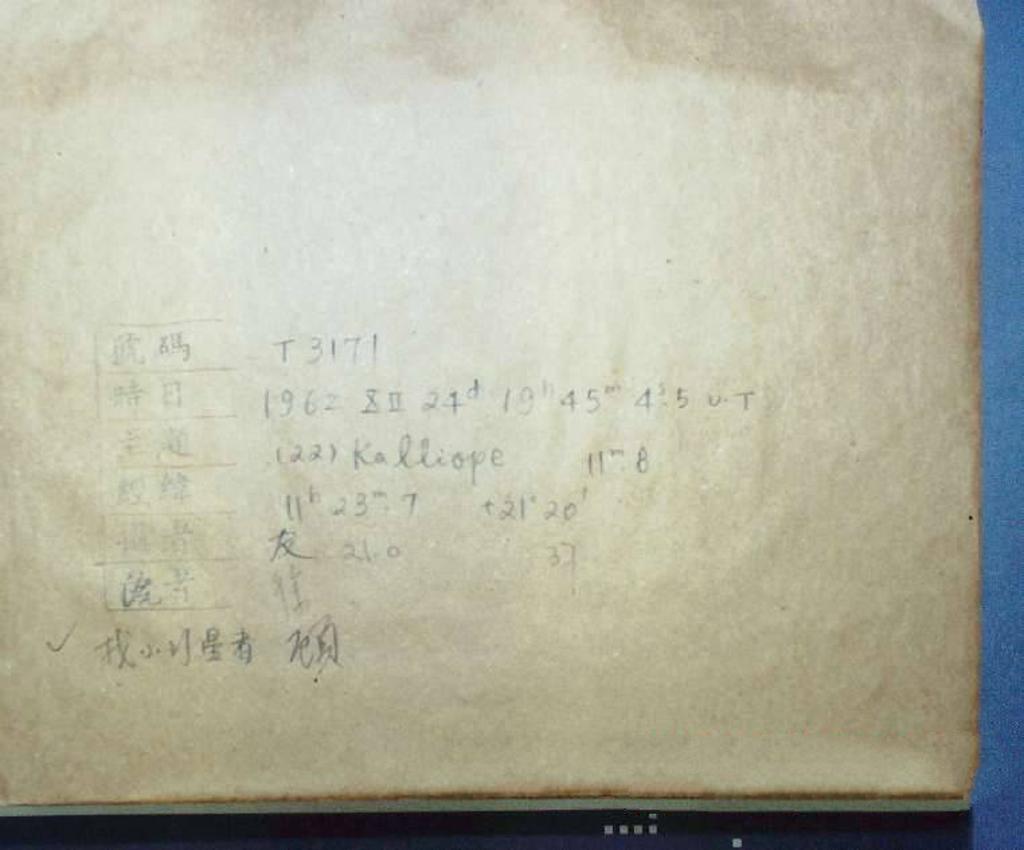 號碼 T 3171
時日 1962 XII 24ᵈ 19ʰ 45ᵐ 4ˢ.5 U.T
主題 (22) Kalliope 11ᵐ.8
經緯 11ʰ 23ᵐ.7 +21° 20'
攝者 友 21.0 37
洗者
✓ 找小行星者 顧